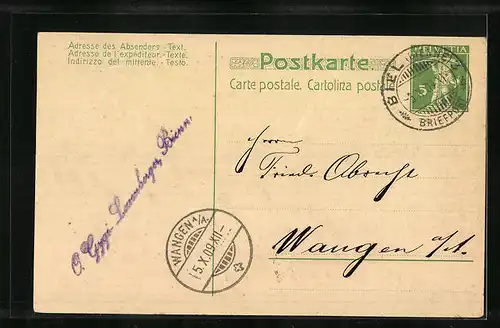 Adresse des Absenders.-Text.
Adresse de l'expéditeur.-Texte.
Indirizzo del mittente.-Testo.
Postkarte.
Carte postale. Cartolina post
HELVETIA
5
BIEL
BRIEFP
Herrn
Fried. Obrecht
Wangen a/A.
WANGEN A/A.
15.X.09.XII-